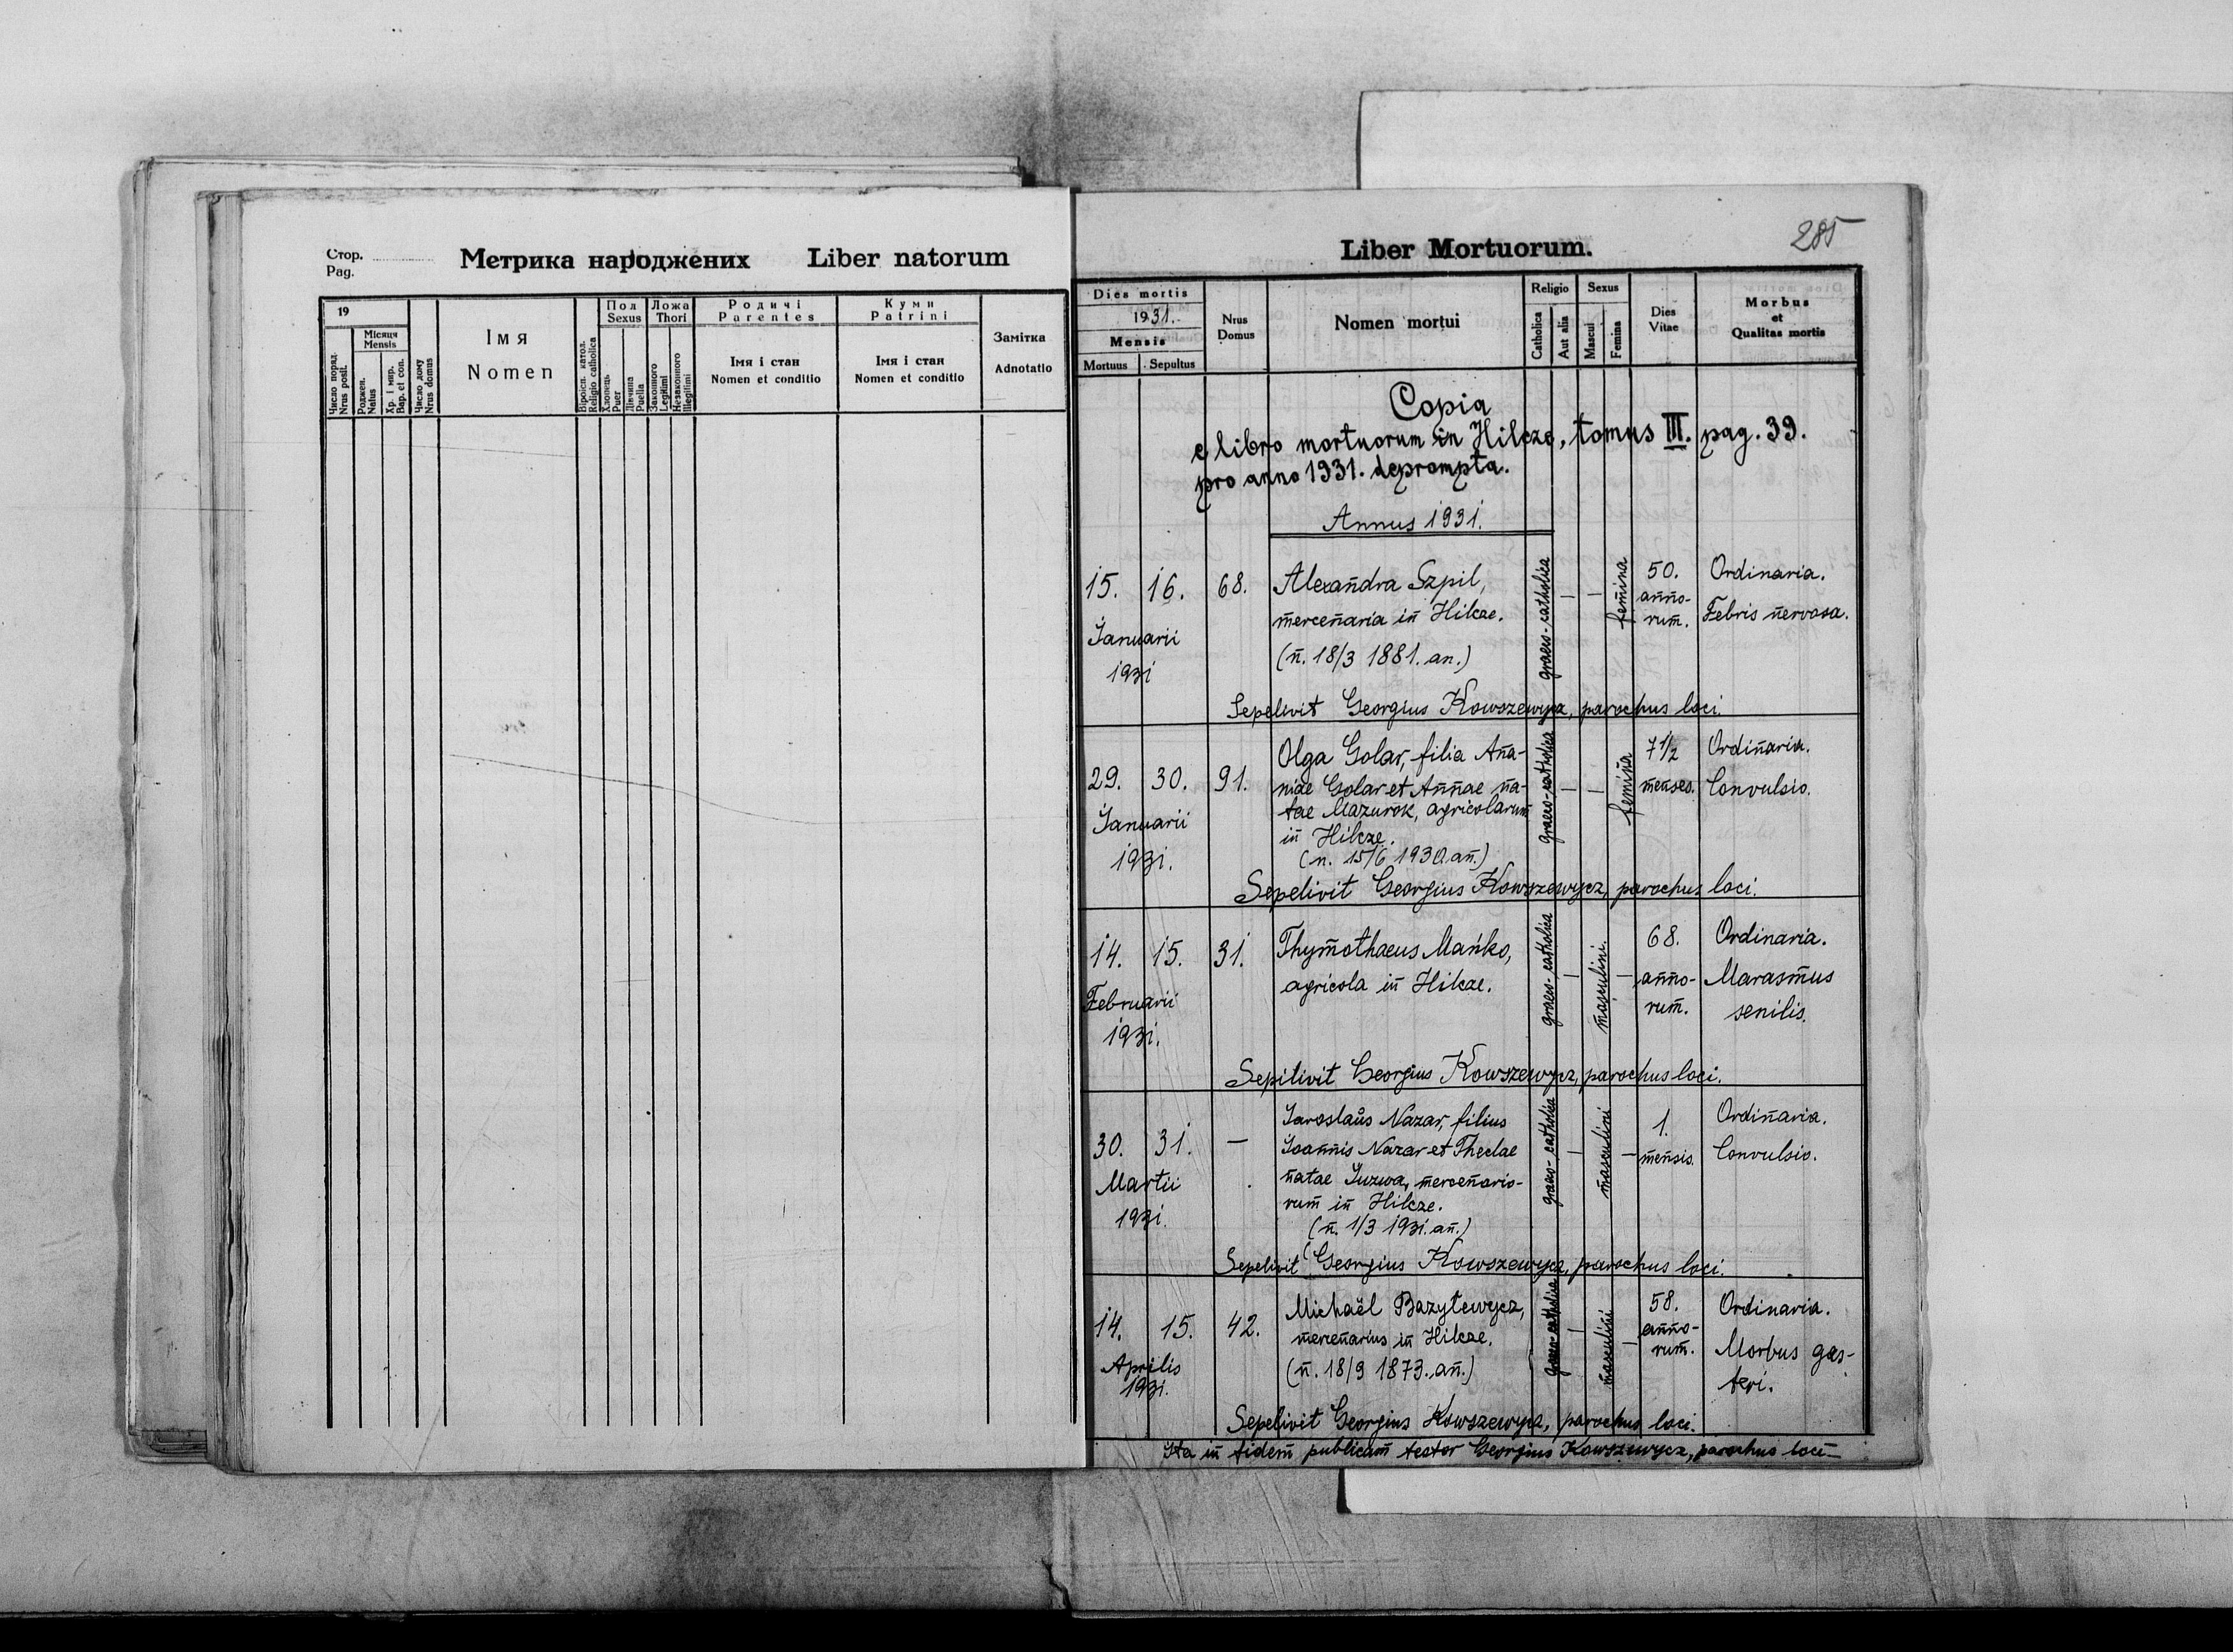 Стор.
Pag.
Метрика народжених Liber natorum
19
Місяця
Mensis
Число поряд.
Nrus posit.
Роджен.
Natus
Хр. і мир.
Bap. et con.
Число дому
Nrus domus
Імя
Nomen
Віроісп. катол.
Religio catholica
Пол
Sexus
Хлопець
Puer
Дівчина
Puella
Ложа
Thori
Законного
Legitimi
Незаконного
Illegitimi
Родичі
Parentes
Імя і стан
Nomen et conditio
Куми
Patrini
Імя і стан
Nomen et conditio
Замітка
Adnotatio
285
Liber Mortuorum.
Dies mortis
1931.
Mensis
Mortuus Sepultus
Nrus
Domus
Nomen mortui
Religio
Catholica
Aut alia
Sexus
Mascul
Femina
Dies
Vitae
Morbus
et
Qualitas mortis
Copia
e libro mortuorum in Hilcze, tomus III. pag. 39.
pro anno 1931. deprompta.
Annus 1931.
15. 16. 68.
Januarii
1931
Alexandra Szpil,
mercenaria in Hilcze.
(n. 18/3 1881. an.)
graeco-catholica
— —
femina
50.
anno-
rum.
Ordinaria.
Febris nervosa.
Sepelivit Georgius Kowszewycz, parochus loci.
29. 30. 91.
Januarii
1931.
Olga Golar, filia Ana-
niae Golar et Annae na-
tae Mazurok, agricolarum
in Hilcze.
(n. 15/6 1930. an.)
graeco-catholica
— —
femina
7 1/2
menses.
Ordinaria.
Convulsio.
Sepelivit Georgius Kowszewycz, parochus loci.
14. 15. 31.
Februarii
1931.
Thymothaeus Mańko,
agricola in Hilcze.
graeco-catholica
—
masculini.
—
68.
anno-
rum.
Ordinaria.
Marasmus
senilis.
Sepilivit Georgius Kowszewycz, parochus loci.
30. 31. —
Martii
1931.
Jaroslaus Nazar, filius
Joannis Nazar et Theclae
natae Juzwa, mercenario-
rum in Hilcze.
(n. 1/3 1931. an.)
graeco-catholica
—
masculini
—
1.
mensis.
Ordinaria.
Convulsio.
Sepelivit Georgius Kowszewycz, parochus loci.
14. 15. 42.
Aprilis
1931.
Michaël Bazytewycz,
mercenarius in Hilcze.
(n. 18/9 1873. an.)
graeco-catholica
—
masculini
—
58.
anno-
rum.
Ordinaria.
Morbus gas-
teri.
Sepelivit Georgius Kowszewycz, parochus loci.
Ita in fidem publicam testor Georgius Kowszewycz, parochus loci —